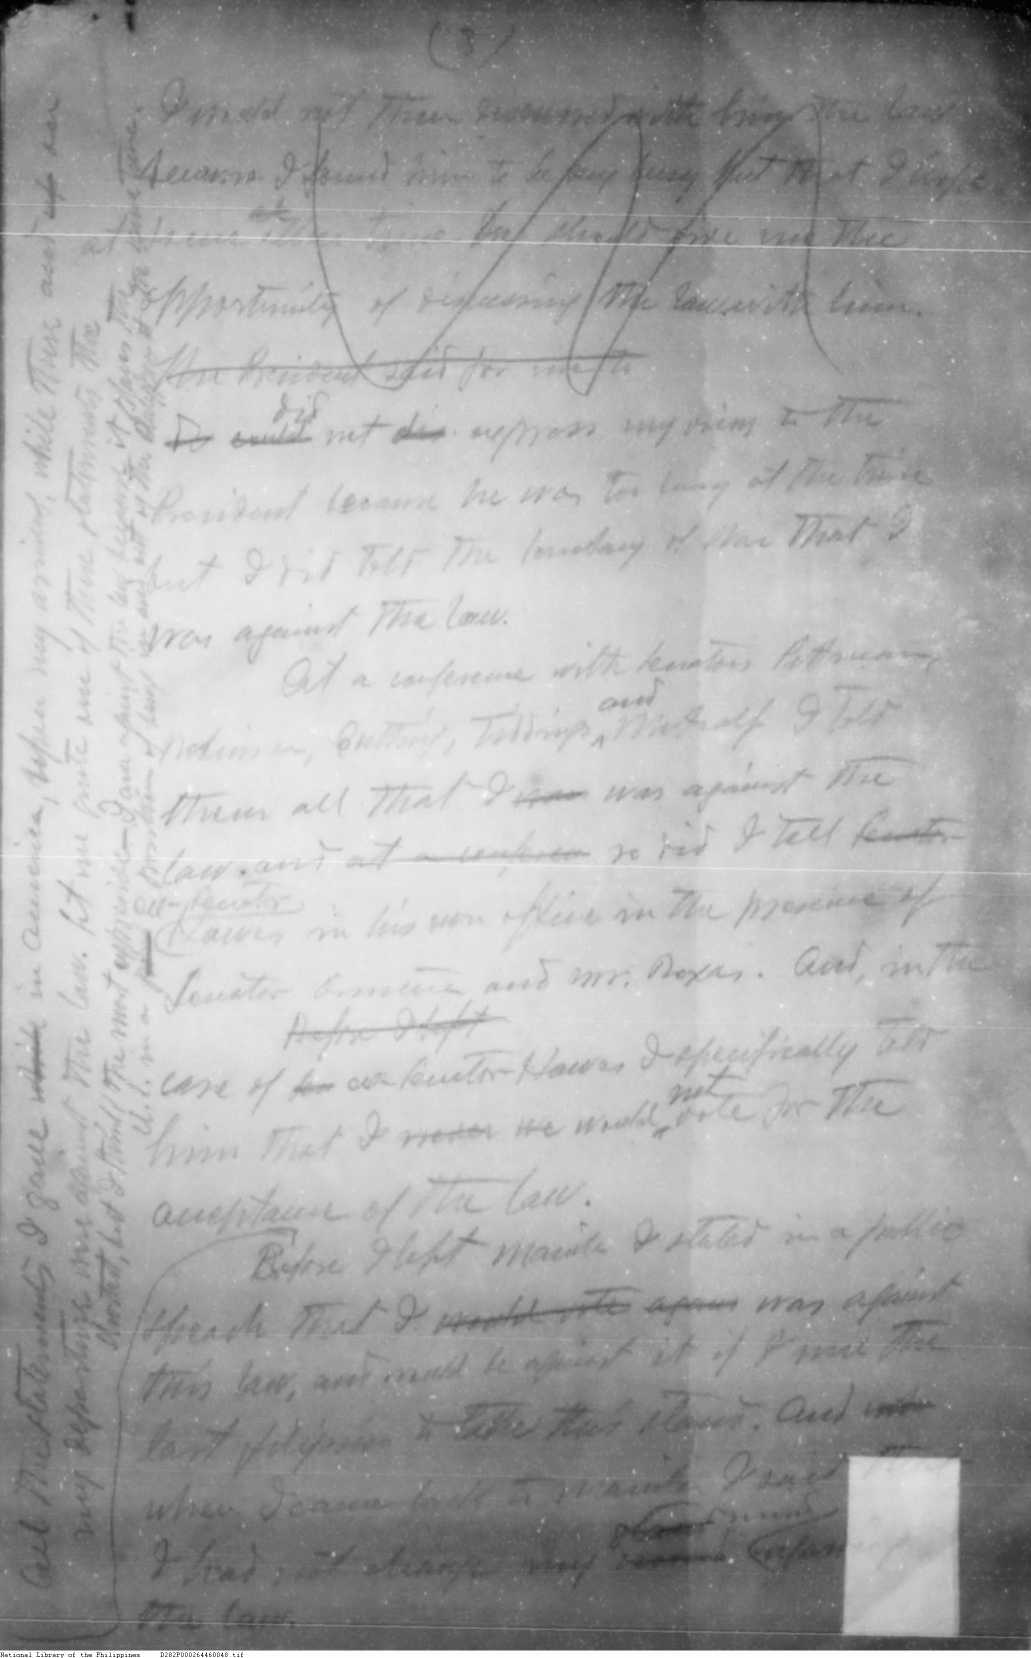 (3)
I could not then discuss with him the law
because I found him to be very busy but that I hope
some other time he should give me the
opportunity of discussing the law with him.
The President said for me to
I could did not dis express my views to the
President because he was too busy at the time
but I did told the Secretary of War that I
was against the law.
At a conference with Senators Pittman,
Robinson, Cutting, Tydings, and Metcalf I told
them all that I was against the
law. and at a conferen so did I tell Senator
Senator
Hawes in his own office in the presence of
Senator Osmeña and Mr. Roxas. And, in the
Before I left
case of Senator Hawes I specifically told
him that I never we would not vote for the
acceptance of the law.
Before I left Manila I stated in a public
speech that I would vote agains was against
this law, and would be against it if I were the
last Filipino to take this stand. And
when I came back to Manila I said that
I had not change my mind
the law.
All the statements I gave while in America, before my arrival, while there and
my departure were against the law. Let me quote one of these statements, the
shortest, but I think the most expressive— I am against the law because it places the
U.S. in a position of being in and out of the Philippines at the same time.
National Library of the Philippines D282P000264460048.tif